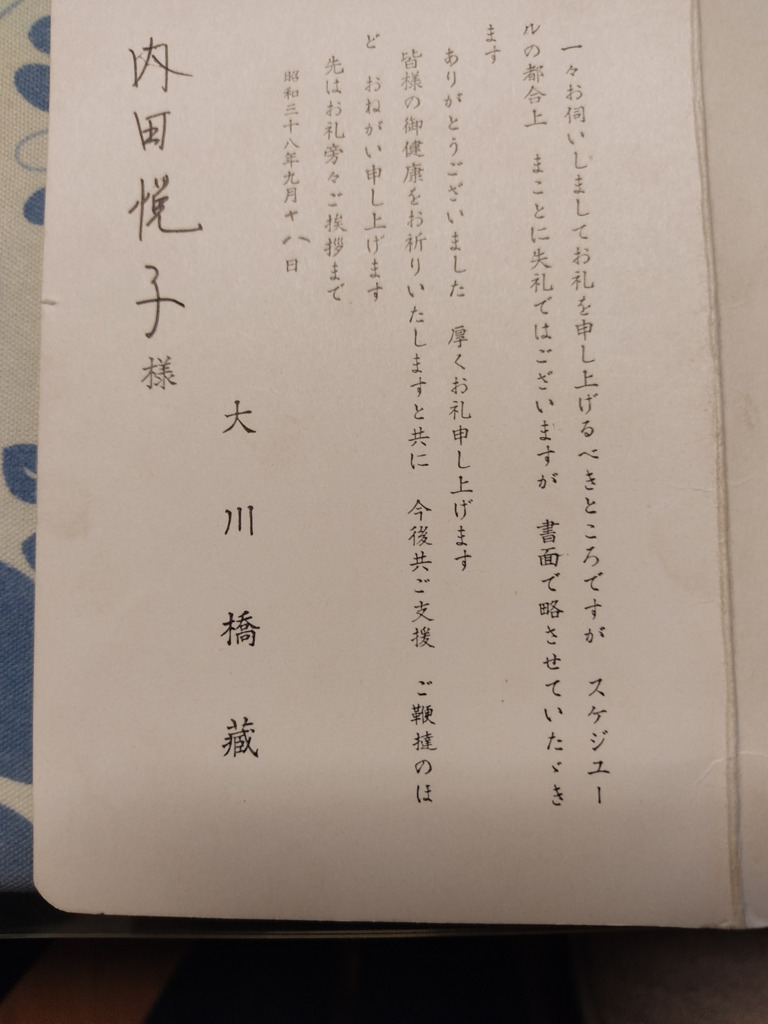 一々お伺いしましてお礼を申し上げるべきところですが　スケジユー
ルの都合上　まことに失礼ではございますが　書面で略させていたゞき
ます
ありがとうございました　厚くお礼申し上げます
皆様の御健康をお祈りいたしますと共に　今後共ご支援　ご鞭撻のほ
ど　おねがい申し上げます
先はお礼旁々ご挨拶まで
昭和三十八年九月十八日
大川橋蔵
内田悦子様